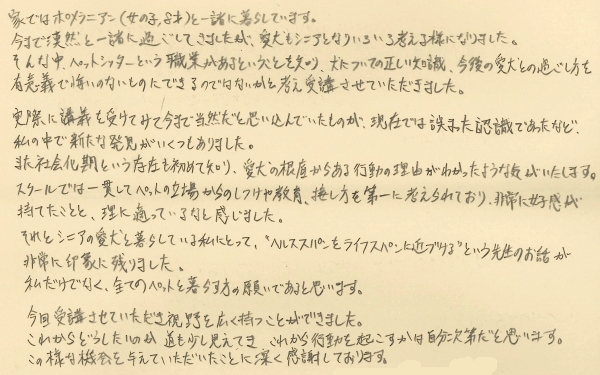 家ではポメラニアン(女の子、8才)と一緒に暮らしています。
今まで漠然と一緒に過ごしてきましたが、愛犬もシニアとなりいろいろ考える様になりました。
そんな中、ペットシッターという職業があるということを知り、犬についての正しい知識、今後の愛犬との過ごし方を
有意義で悔いのないものにできるのではないかと考え受講させていただきました。
実際に講義を受けてみて今まで当然だと思い込んでいたものが、現在では誤まった認識であったなど、
私の中で新たな発見がいくつもありました。
また社会化期という存在も初めて知り、愛犬の根底からある行動の理由がわかったような気がいたします。
スクールでは一貫してペットの立場からのしつけや教育、接し方を第一に考えられており、非常に好感が
持てたことと、理に適っているなと感じました。
それとシニアの愛犬と暮らしている私にとって、“ヘルススパンをライフスパンに近づける”という先生のお話が
非常に印象に残りました。
私だけでなく、全てのペットと暮らす方の願いであると思います。
今回受講させていただき視野を広く持つことができました。
これからどうしたいのか 道も少し見えてき これから行動を起こすかは自分次第だと思います。
この様な機会を与えていただいたことに深く感謝しております。